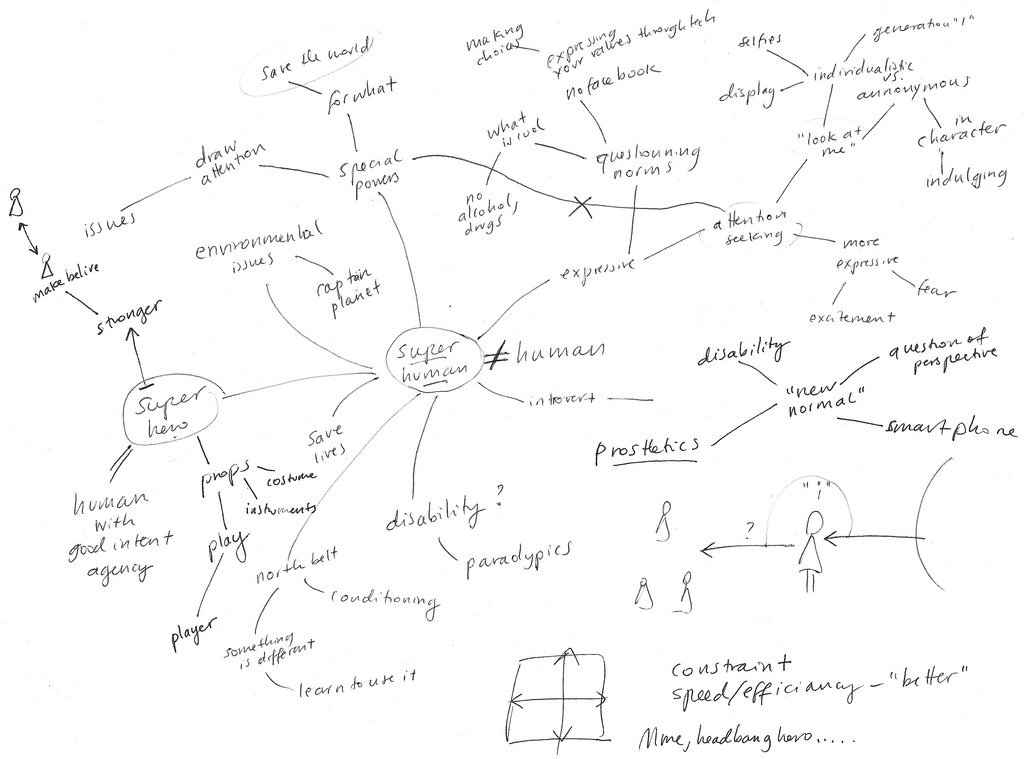 making
choices
expressing
your values through tech
no facebook
selfies
generation "i"
individualistic
vs.
annonymous
display
save the world
for what
what
is cool
"look at
me"
in
character
indulging
draw
attention
special
powers
questionning
norms
no
alcohol,
drugs
issues
attention
seeking
environmental
issues
captain
planet
expressive
more
expressive
fear
excitement
make belive
stronger
super
human
≠ human
introvert
disability
question of
perspective
"new
normal"
smart phone
prosthetics
super
hero
save
lives
props
costume
instruments
human
with
good intent
agency
play
player
disability ?
paradypics
north belt
conditioning
something
is different
learn to use it
"i"
?
constraint
speed/efficiancy – "better"
Mme, headbang hero.....